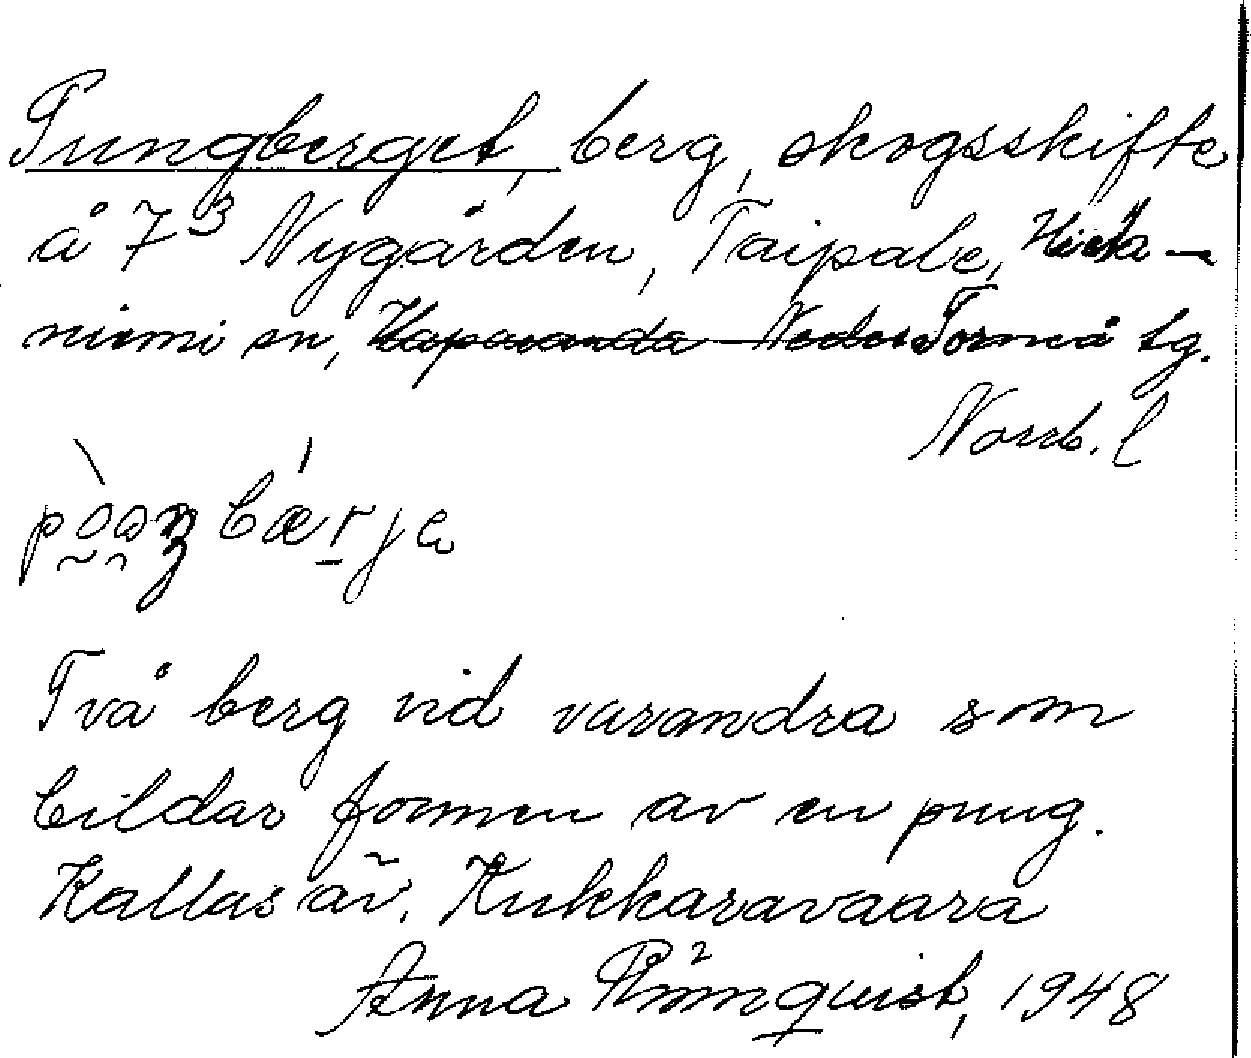 Pungberget, berg, skogsskifte
å 7³ Nygården, Taipale, Hieta-
niemi sn, Haparanda Neder Torneå tg.
Norrb. l
Två berg vid varandra som
bildar formen av en pung.
Kallas äv. Kukkaravaara
Anna Rönquist, 1948